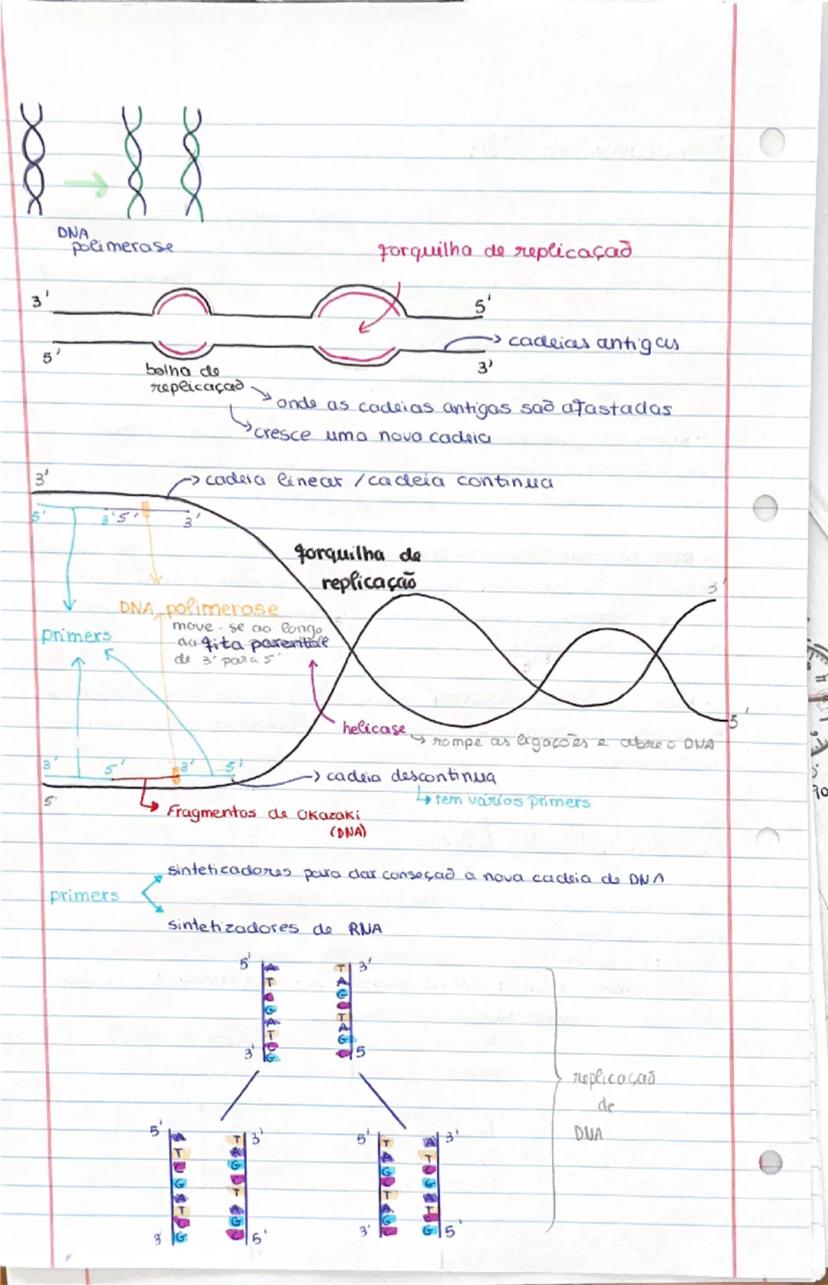 DNA
polimerase
forquilha de replicação
3'
5'
5'
3'
cadeias antigas
bolha de
replicação
onde as cadeias antigas são afastadas
cresce uma nova cadeia
3'
cadeia linear / cadeia continua
5'
3' 5'
3'
forquilha de
replicação
3'
DNA polimerase
move-se ao longo
da fita parental
de 3' para 5'
primers
5'
helicase
rompe as ligações e abre o DNA
3'
5'
3'
5'
cadeia descontinua
tem vários primers
5
Fragmentos de Okazaki
(DNA)
primers
sinteticadores para dar conseçaõ a nova cadeia de DNA
sintetizadores de RNA
5' 3'
A T
T A
C G
G C
A T
T A
C G
G C
3' 5
replicação
de
DNA
5' 3' 5' 3'
A T T A
T A A T
C G G C
G C C G
A T T A
T A A T
C G G C
G C C G
3' 5' 3' 5'